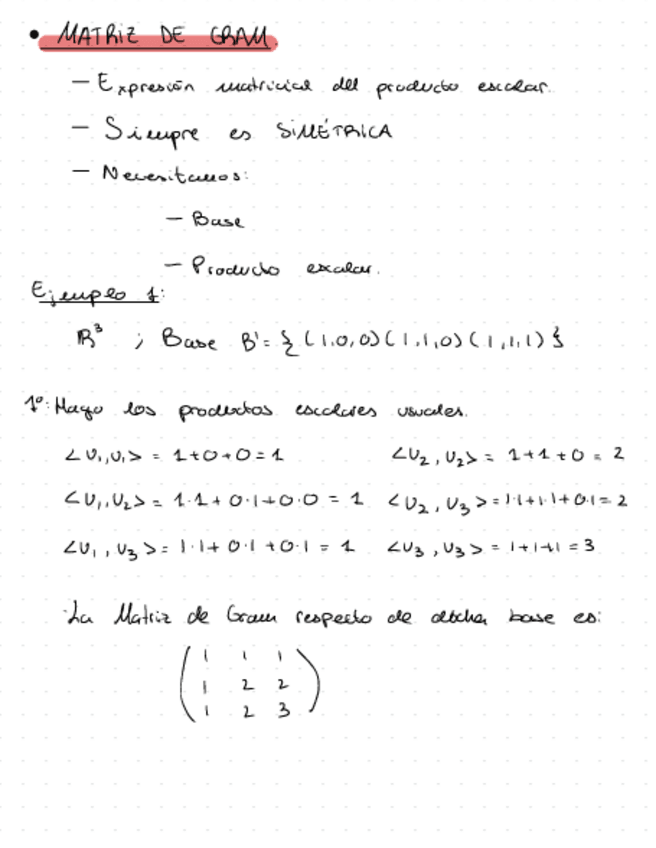 • MATRIZ DE GRAM.
- Expresión matricial del producto escalar.
- Siempre es SIMÉTRICA
- Necesitamos:
- Base
- Producto escalar.
Ejemplo 1:
ℝ³ ; Base B' = { (1,0,0) (1,1,0) (1,1,1) }
1º: Hago los productos escalares usuales.
<U₁,U₁> = 1+0+0=1 <U₂,U₂> = 1+1+0 = 2
<U₁,U₂> = 1·1+0·1+0·0 = 1 <U₂,U₃> = 1·1+1·1+0·1=2
<U₁,U₃> = 1·1+0·1+0·1 = 1 <U₃,U₃> = 1+1+1=3
La Matriz de Gram respecto de dicha base es:
1 1 1
1 2 2
1 2 3